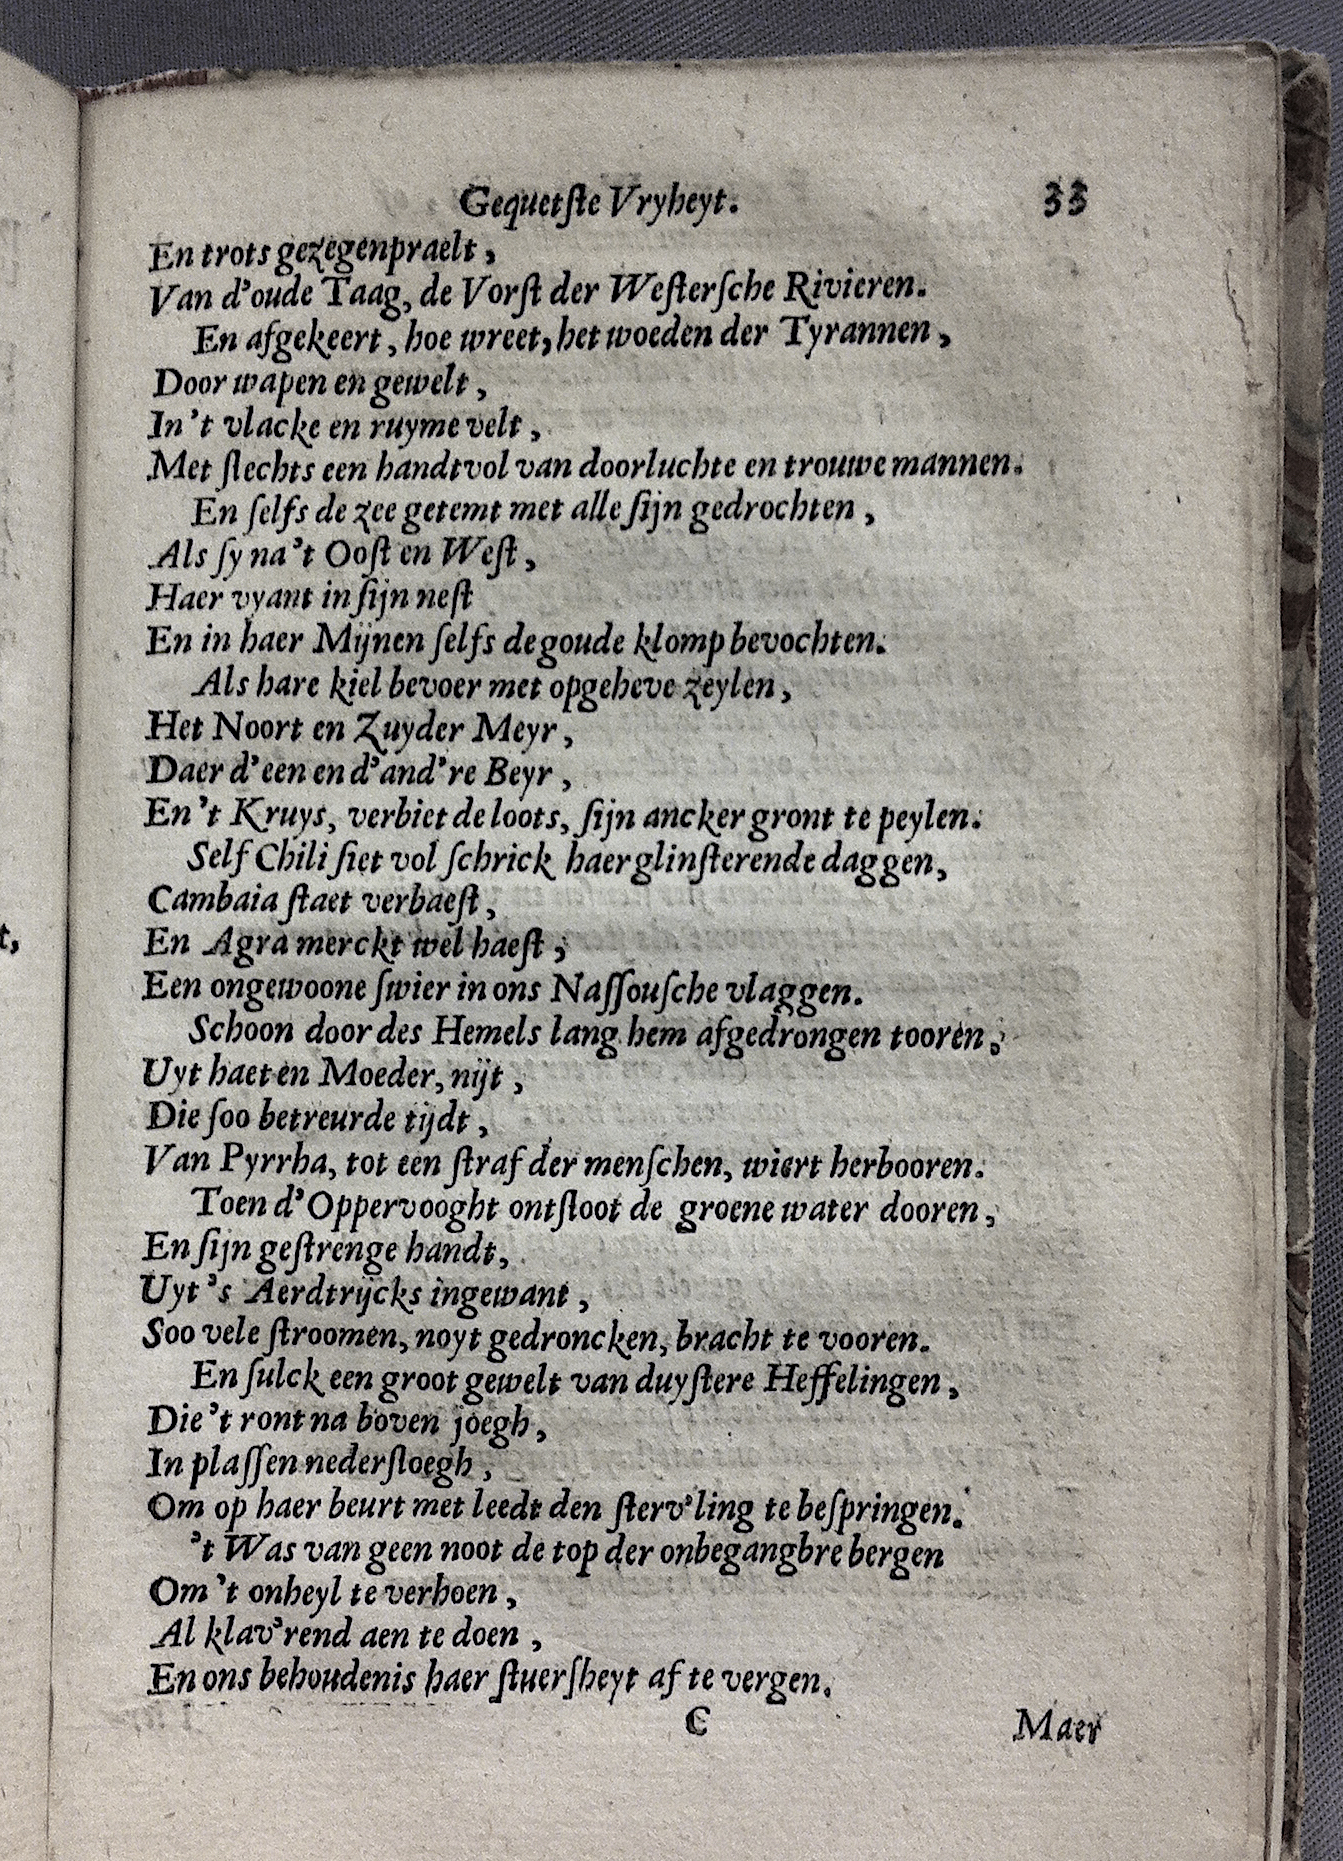 Gequetſte Vryheyt. 33
En trots gezegenpraelt,
Van d'oude Taag, de Vorſt der Weſterſche Rivieren.
En afgekeert, hoe wreet, het woeden der Tyrannen,
Door wapen en gewelt,
In 't vlacke en ruyme velt,
Met ſlechts een handtvol van doorluchte en trouwe mannen.
En ſelfs de zee getemt met alle ſijn gedrochten,
Als ſy na 't Ooſt en Weſt,
Haer vyant in ſijn neſt
En in haer Mijnen ſelfs de goude klomp bevochten.
Als hare kiel bevoer met opgeheve zeylen,
Het Noort en Zuyder Meyr,
Daer d'een en d'and're Beyr,
En 't Kruys, verbiet de loots, ſijn ancker gront te peylen.
Self Chili ſiet vol ſchrick haer glinſterende daggen,
Cambaia ſtaet verbaeſt,
En Agra merckt wel haeſt,
Een ongewoone ſwier in ons Naſſouſche vlaggen.
Schoon door des Hemels lang hem afgedrongen tooren,
Uyt haet en Moeder, nijt,
Die ſoo betreurde tijdt,
Van Pyrrha, tot een ſtraf der menſchen, wiert herbooren.
Toen d'Oppervooght ontſloot de groene water dooren,
En ſijn geſtrenge handt,
Uyt 's Aerdtrijcks ingewant,
Soo vele ſtroomen, noyt gedroncken, bracht te vooren.
En ſulck een groot gewelt van duyſtere Heffelingen,
Die 't ront na boven joegh,
In plaſſen nederſloegh,
Om op haer beurt met leedt den ſterv'ling te beſpringen.
't Was van geen noot de top der onbegangbre bergen
Om 't onheyl te verhoen,
Al klav'rend aen te doen,
En ons behoudenis haer ſtuerſheyt af te vergen.
C Maer
t,